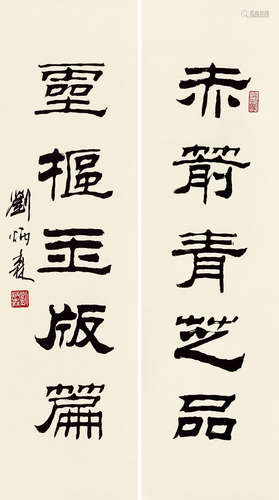 赤箭青芝品
靈樞玉版篇
劉炳森